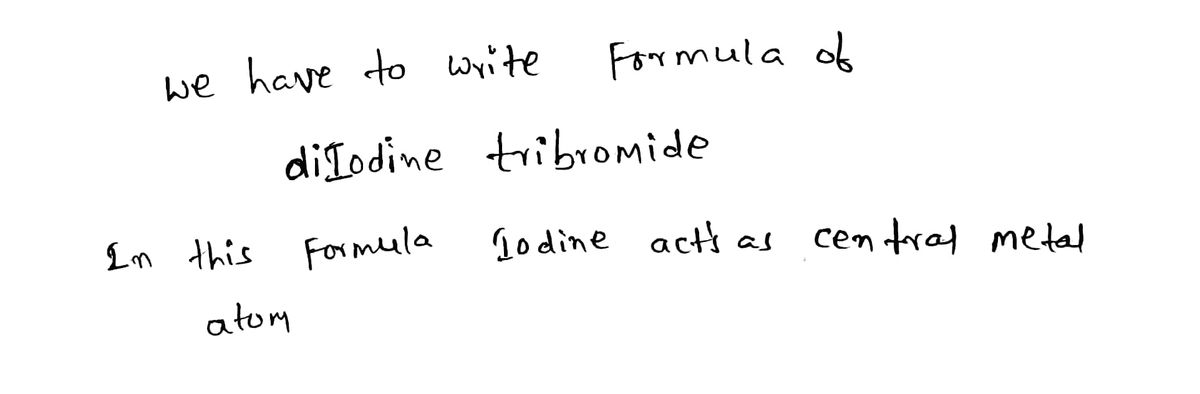 we have to write Formula of
diIodine tribromide
In this Formula Iodine act's as central metal
atom